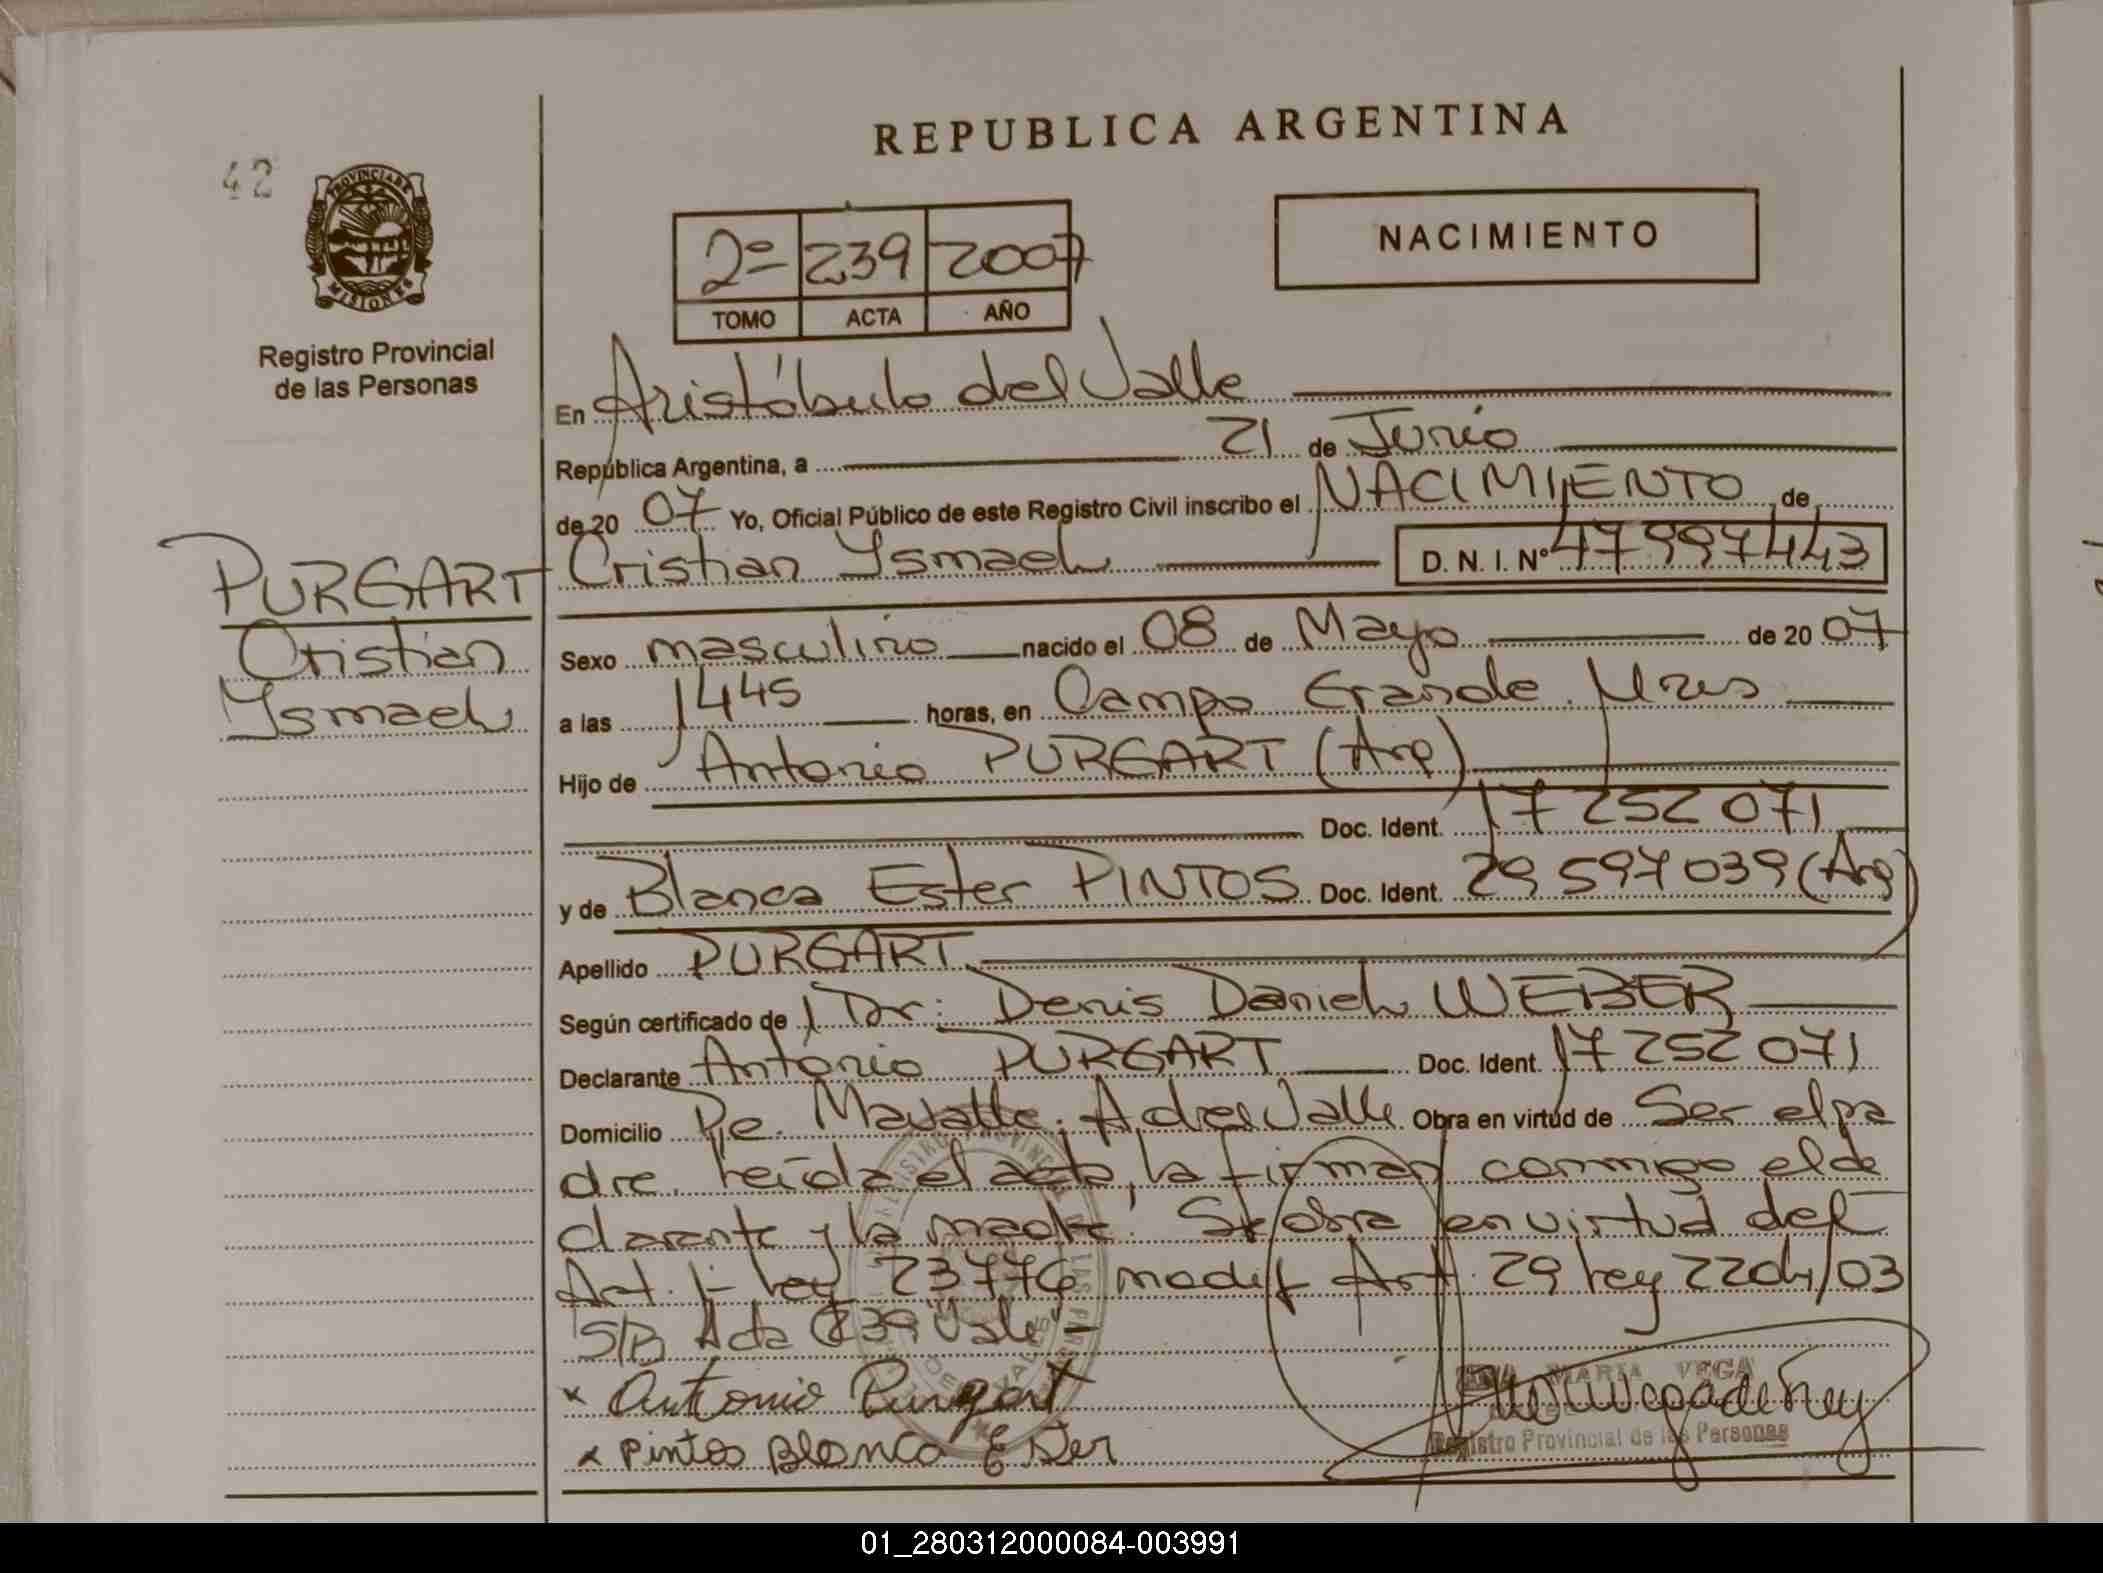 REPUBLICA ARGENTINA
42
PROVINCIA DE
MISIONES
Registro Provincial
de las Personas
2º 239 2007
TOMO ACTA AÑO
NACIMIENTO
En Aristóbulo del Valle
República Argentina, a 21 de Junio
de 20 07 Yo, Oficial Público de este Registro Civil inscribo el NACIMIENTO de
PURGART Cristian Ysmael D. N. I. Nº 47997443
Cristian
Ysmael
Sexo masculino nacido el 08 de Mayo de 20 07
a las 1445 horas, en Campo Grande. Mnes
Hijo de Antonio PURGART (Arg)
Doc. Ident. 17252071
y de Blanca Ester PINTOS Doc. Ident. 29597039 (Arg)
Apellido PURGART
Según certificado de Dr: Denis Daniel WEBER
Declarante Antonio PURGART Doc. Ident. 17252071
Domicilio Pje. Mavalle. A del Valle Obra en virtud de Ser el pa
dre. Leída el acta, la firman conmigo el de
clarante y la madre. Se obra en virtud del
Art. 1- Ley 23776 modif Art. 29 Ley 2204/03
S/B Acta 239 "Vale"-
x Antonio Purgart
x Pintos Blanca Ester
MARIA VEGA
Registro Provincial de las Personas
01_280312000084-003991